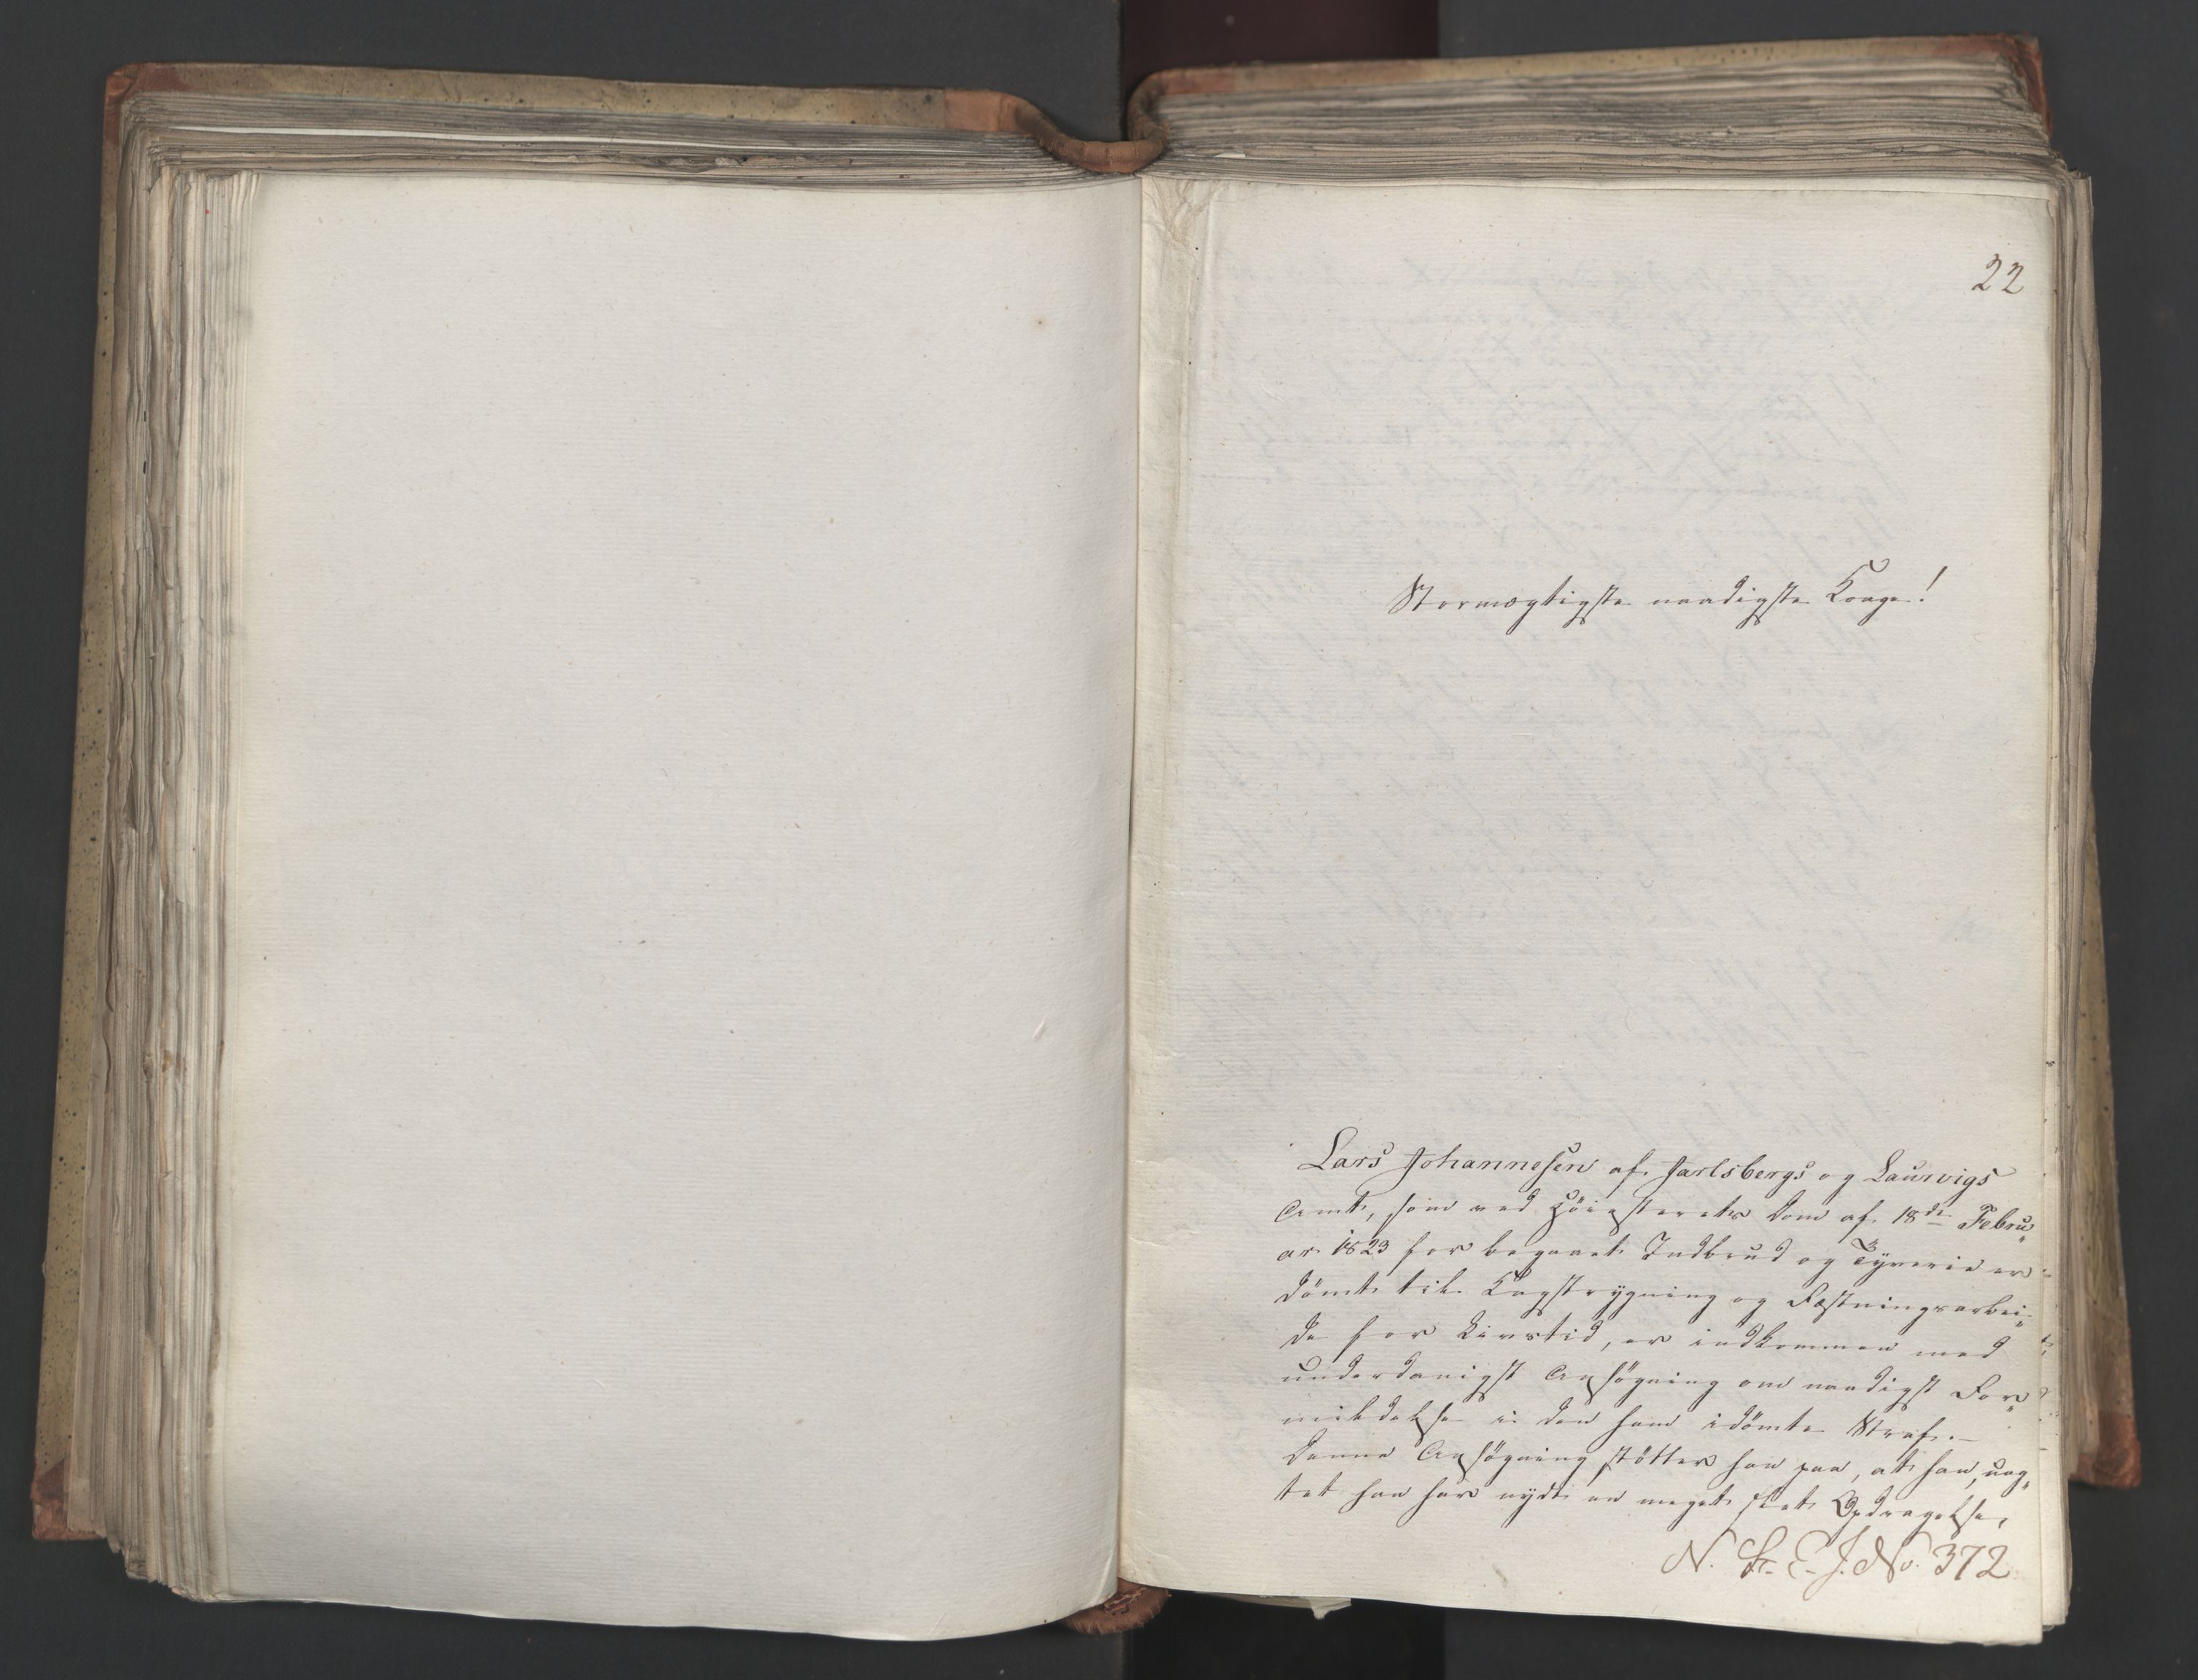 22
Stormægtigste naadigste Konge!
Lars Johannesen af Jarlsbergs og Laurvigs
Amt, som ved Höiesterets Dom af 18de Febru„
ar 1823 for begaaet Indbrud og Tÿverie er
dömt til Kagstrygning og Fæstningsarbei„
de for Livstid, er indkommen med
underdanigst Ansögning om naadigst For„
mildelse i den ham idömte Straf.–
Denne Ansögning stötter han paa, at han, uag„
tet han har nydt en meget slet Opdragelse,
N. St. E. J. No. 372